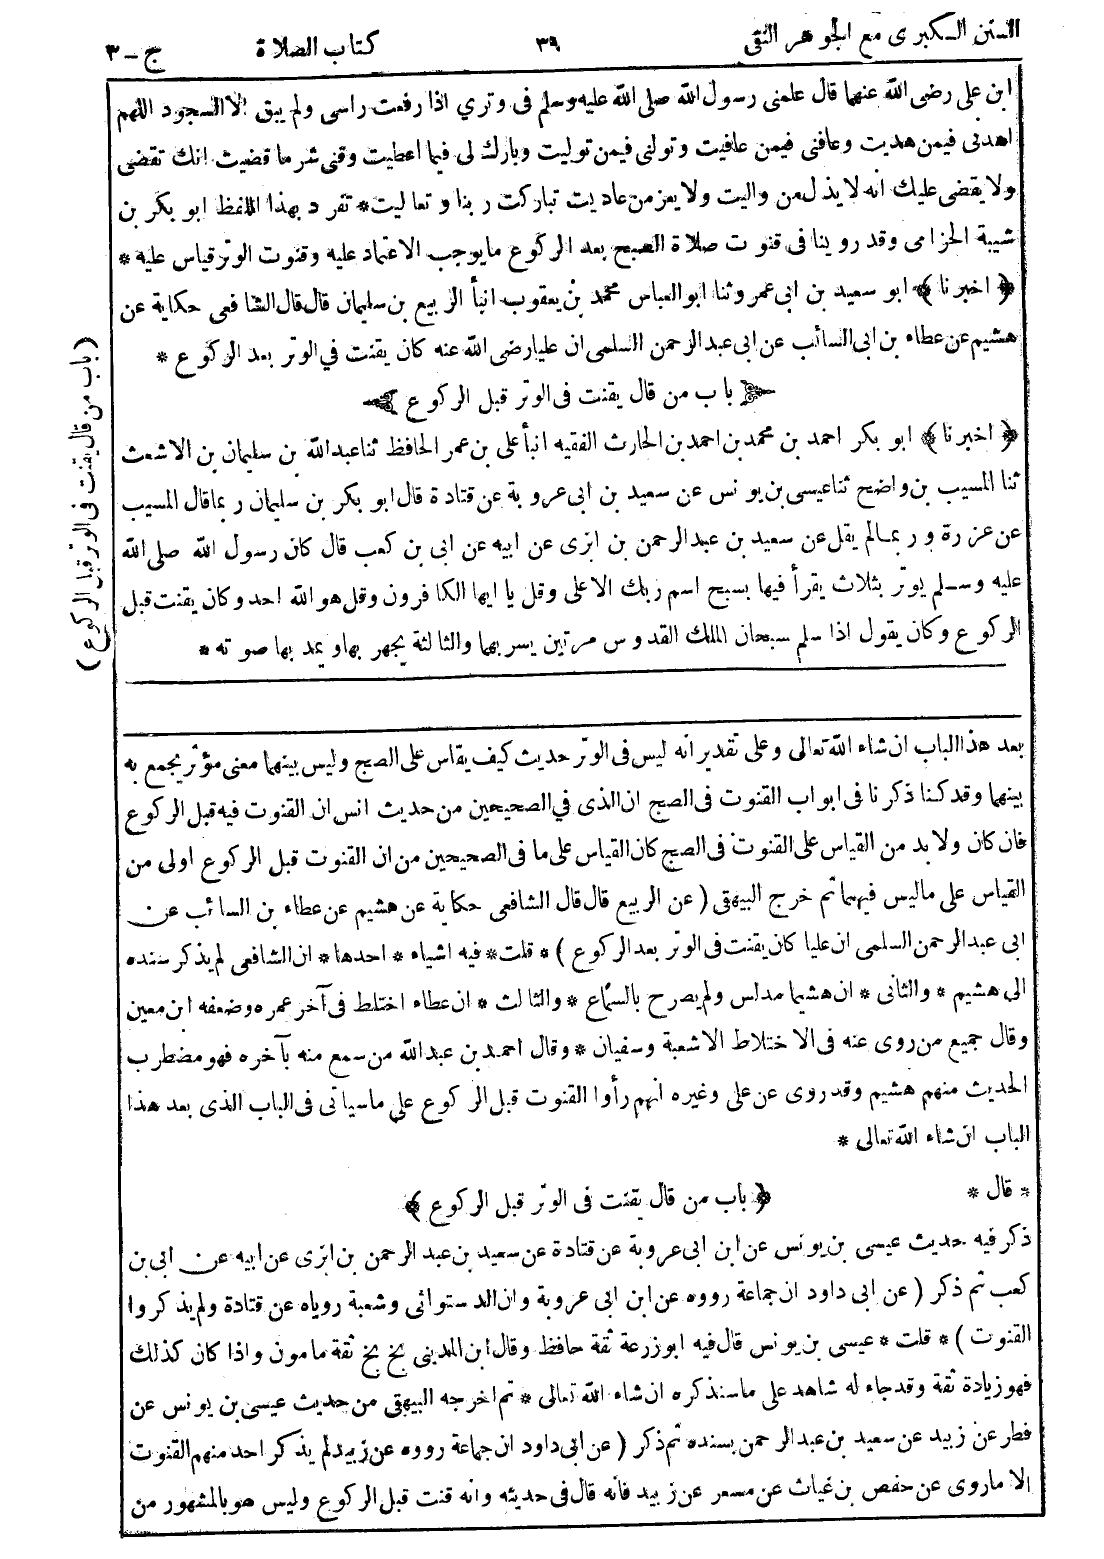 السنن الكبرى مع الجوهر النقى ٣٩ كتاب الصلاة ج - ٣
ابن على رضى الله عنهما قال علمنى رسول الله صلى الله عليه وسلم فى وتري اذا رفعت راسى ولم يبق الا السجود اللهم
اهدنى فيمن هديت وعافنى فيمن عافيت وتولنى فيمن توليت وبارك لى فيما اعطيت وقنى شر ما قضيت انك تقضى
ولا يقضى عليك انه لا يذل من واليت ولا يعز من عاديت تباركت ربنا و تعاليت * تفرد بهذا اللفظ ابو بكر بن
شيبة الحزامى وقد روينا فى قنوت صلاة الصبح بعد الركوع ما يوجب الاعتماد عليه وقنوت الوتر قياس عليه *
﴿ اخبرنا ﴾ ابو سعيد بن ابى عمرو ثنا ابو العباس محمد بن يعقوب انبأ الربيع بن سليمان قال قال الشافعى حكاية عن
هشيم عن عطاء بن ابى السائب عن ابى عبد الرحمن السلمى ان عليا رضى الله عنه كان يقنت في الوتر بعد الركوع *
﴿ باب من قال يقنت فى الوتر قبل الركوع ﴾
﴿ اخبرنا ﴾ ابو بكر احمد بن محمد بن احمد بن الحارث الفقيه انبأ على بن عمر الحافظ ثنا عبد الله بن سليمان بن الاشعث
ثنا المسيب بن واضح ثنا عيسى بن يونس عن سعيد بن ابى عروبة عن قتادة قال ابو بكر بن سليمان ربما قال المسيب
عن عزرة و ربما لم يقل عن سعيد بن عبد الرحمن بن ابزى عن ابيه عن ابى بن كعب قال كان رسول الله صلى الله
عليه وسلم يوتر بثلاث يقرأ فيها بسبح اسم ربك الاعلى وقل يا ايها الكافرون وقل هو الله احد وكان يقنت قبل
الركوع وكان يقول اذا سلم سبحان الملك القدوس مرتين يسر بهما والثالثة يجهر بها و يمد بها صوته *
(باب من قال يقنت فى الوتر قبل الركوع)
بعد هذا الباب ان شاء الله تعالى وعلى تقدير انه ليس فى الوتر حديث كيف يقاس على الصبح وليس بينهما معنى مؤثر يجمع به
بينهما وقد كنا ذكرنا فى ابواب القنوت فى الصبح ان الذى في الصحيحين من حديث انس ان القنوت فيه قبل الركوع
فان كان ولا بد من القياس على القنوت فى الصبح كان القياس على ما فى الصحيحين من ان القنوت قبل الركوع اولى من
القياس على ما ليس فيهما ثم خرج البيهقى ( عن الربيع قال قال الشافعى حكاية عن هشيم عن عطاء بن السائب عن
ابى عبد الرحمن السلمى ان عليا كان يقنت فى الوتر بعد الركوع ) * قلت * فيه اشياء * احدها * ان الشافعى لم يذكر سنده
الى هشيم * والثانى * ان هشيما مدلس ولم يصرح بالسماع * والثالث * ان عطاء اختلط فى آخر عمره وضعفه ابن معين
وقال جميع من روى عنه فى الاختلاط الا شعبة وسفيان * وقال احمد بن عبد الله من سمع منه بآخره فهو مضطرب
الحديث منهم هشيم وقد روى عن على وغيره انهم رأوا القنوت قبل الركوع على ما سيأتى فى الباب الذى بعد هذا
الباب ان شاء الله تعالى *
* قال * ﴿ باب من قال يقنت فى الوتر قبل الركوع ﴾
ذكر فيه حديث عيسى بن يونس عن ابن ابى عروبة عن قتادة عن سعيد بن عبد الرحمن بن ابزى عن ابيه عن ابى بن
كعب ثم ذكر ( عن ابى داود ان جماعة رووه عن ابن ابى عروبة وان الدستوائى وشعبة روياه عن قتادة ولم يذكروا
القنوت ) * قلت * عيسى بن يونس قال فيه ابو زرعة ثقة حافظ وقال ابن المدينى بخ بخ ثقة مامون واذا كان كذلك
فهو زيادة ثقة وقد جاء له شاهد على ما سنذكره ان شاء الله تعالى * ثم اخرجه البيهقى من حديث عيسى بن يونس عن
فطر عن زبيد عن سعيد بن عبد الرحمن بسنده ثم ذكر ( عن ابى داود ان جماعة رووه عن زبيد لم يذكر احد منهم القنوت
الا ما روى عن حفص بن غياث عن مسعر عن زبيد فانه قال فى حديثه وانه قنت قبل الركوع وليس هو بالمشهور من